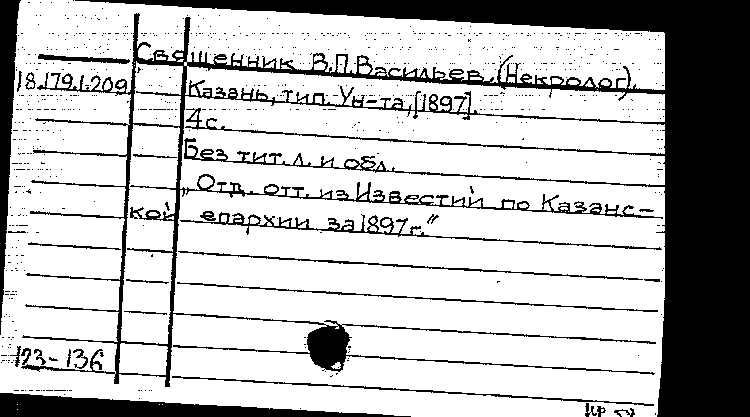 Священник В.П.Васильев. (Некролог).
18.179.1.209
Казань, тип. Ун-та, [1897].
4с.
Без тит. л. и обл.
„Отд. отт. из Известий по Казанс-
кой епархии за 1897г.”
123-136